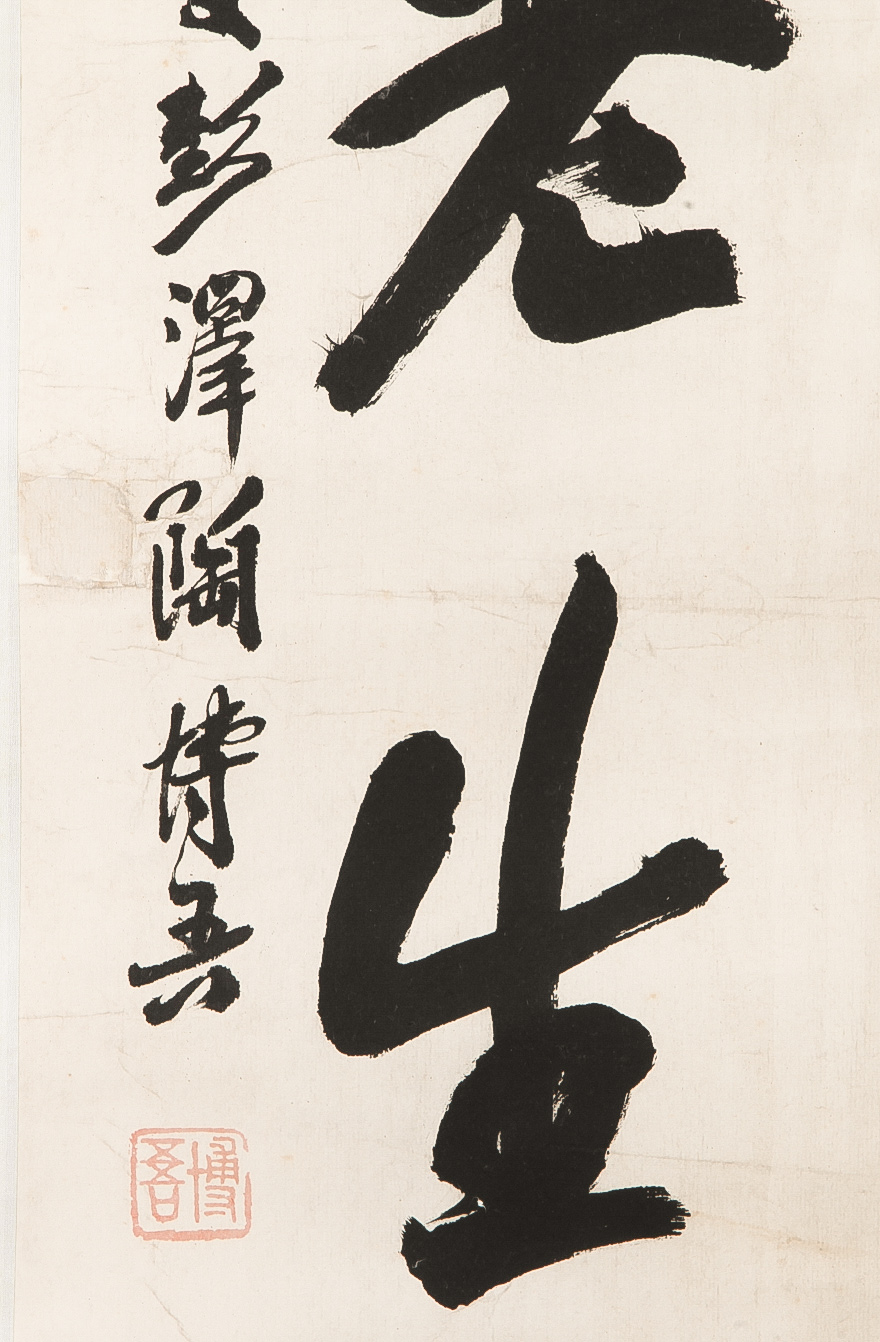 老生
彭澤陶博吾
博吾